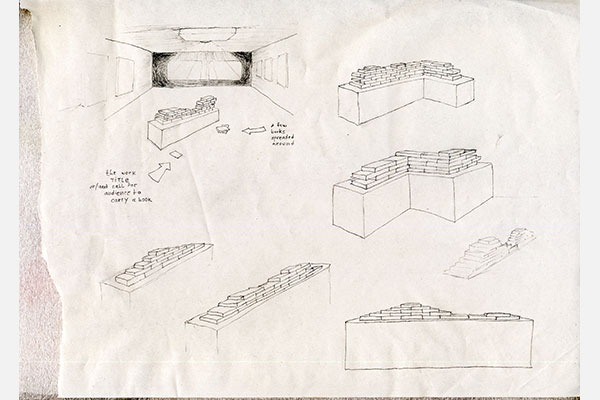 a few
books
spreaded
around
the work
TITLE
or/and call for
audience to
carry a book